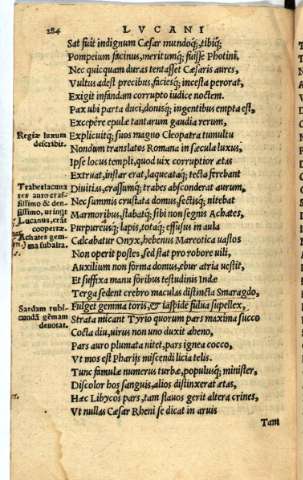 284 LVCANI
Sat fuit indignum Cæsar mundoq́;, tibiq́;
Pompeium facinus, meritumq́; fuisse Photini,
Nec quicquam duras tentasset Cæsaris aures,
Vultus adest precibus, faciesq́; incesta perorat,
Exigit infandam corrupto iudice noctem.
Pax ubi parta duci, donisq́; ingentibus empta est,
Excepêre epulæ tantarum gaudia rerum,
Regiæ luxum
describit.
Explicuitq́; suos magno Cleopatra tumultu
Nondum translatos Romana in sæcula luxus,
Ipse locus templi, quod uix corruptior ætas
Extruat, instar erat, laqueataq́; tecta ferebant
Diuitias, crassumq́; trabes absconderat aurum,
Nec summis crustata domus, sectisq́; nitebat
Marmoribus, stabatq́; sibi non segnis Achates,
Purpureusq́; lapis, totaq́; effusus in aula
Calcabatur Onyx, hebenus Mareotica uastos
Non operit postes, sed stat pro robore uili,
Auxilium non forma domus, ebur atria uestit,
Et suffixa manu foribus testudinis Indæ
Terga sedent crebro maculas distincta Smaragdo,
Sardam rubi-
cundā gēmam
denotat.
Fulget gemma toris, et Iaspide fulua supellex,
Strata micant Tyrio quorum pars maxima succo
Cocta diu, uirus non uno duxit aheno,
Pars auro plumata nitet, pars ignea cocco,
Vt mos est Pharijs miscendi licia telis.
Tunc famulæ numerus turbæ, populusq́; minister,
Discolor hos sanguis, alios distinxerat ætas,
Hæc Libycos pars, tam flauos gerit altera crines,
Vt nullas Cæsar Rheni se dicat in aruis
Tam